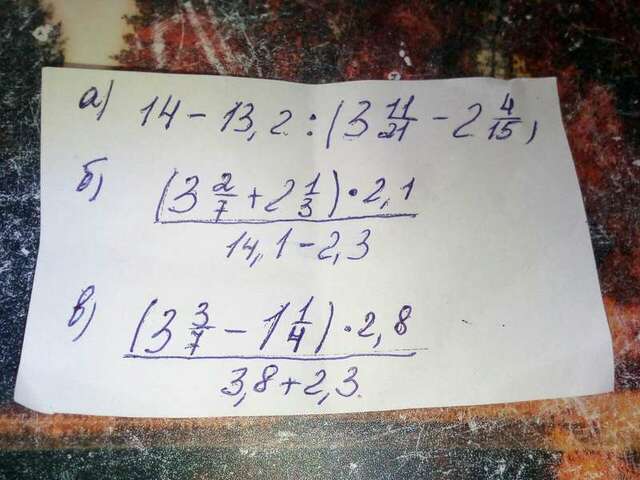 а) 14 - 13,2 : (3 11/21 - 2 4/15)
б) (3 2/7 + 2 1/3) · 2,1
14,1 - 2,3
в) (3 3/7 - 1 1/4) · 2,8
3,8 + 2,3